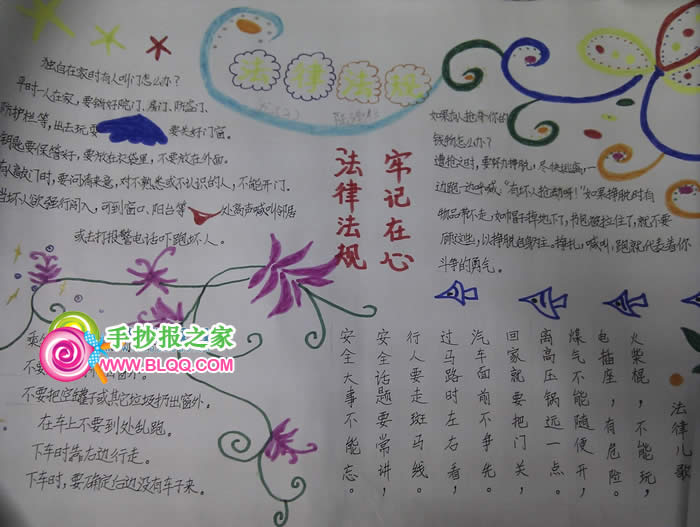 法律法规
独自在家时有人叫门怎么办?
平时一人在家,要锁好院门、房门、防盗门、
防护栏等,出去玩要关好门窗。
钥匙要保管好,要放在衣袋里,不要放在外面。
有人敲门时,要问清来意,对不熟悉或不认识的人,不能开门。
当坏人欲强行闯入,可到窗口、阳台等处高声喊叫邻居
或去打报警电话吓跑坏人。
牢记在心
法律法规
如果有人抢夺你的
钱物怎么办?
遭抢之时,要努力挣脱,尽快逃离,一
边跑一边呼喊,"有坏人抢劫呀!"如果挣脱时有
物品带不走,如帽子掉地下了,书包被拉住了,就不要
顾这些,以挣脱自身为主。挣扎,喊叫,跑就代表着你
斗争的勇气。
手抄报之家
WWW.BLQQ.COM
不要把空罐子或其它垃圾扔出窗外。
在车上不要到处乱跑。
下车时靠右边行走。
下车时,要确定右边没有车子来。
法律儿歌
火柴棍,不能玩,
电插座,有危险。
煤气不能随便开,
离高压锅远一点。
回家就要把门关,
汽车面前不争先,
过马路时左右看,
行人要走斑马线。
安全话题要常讲,
安全大事不能忘。